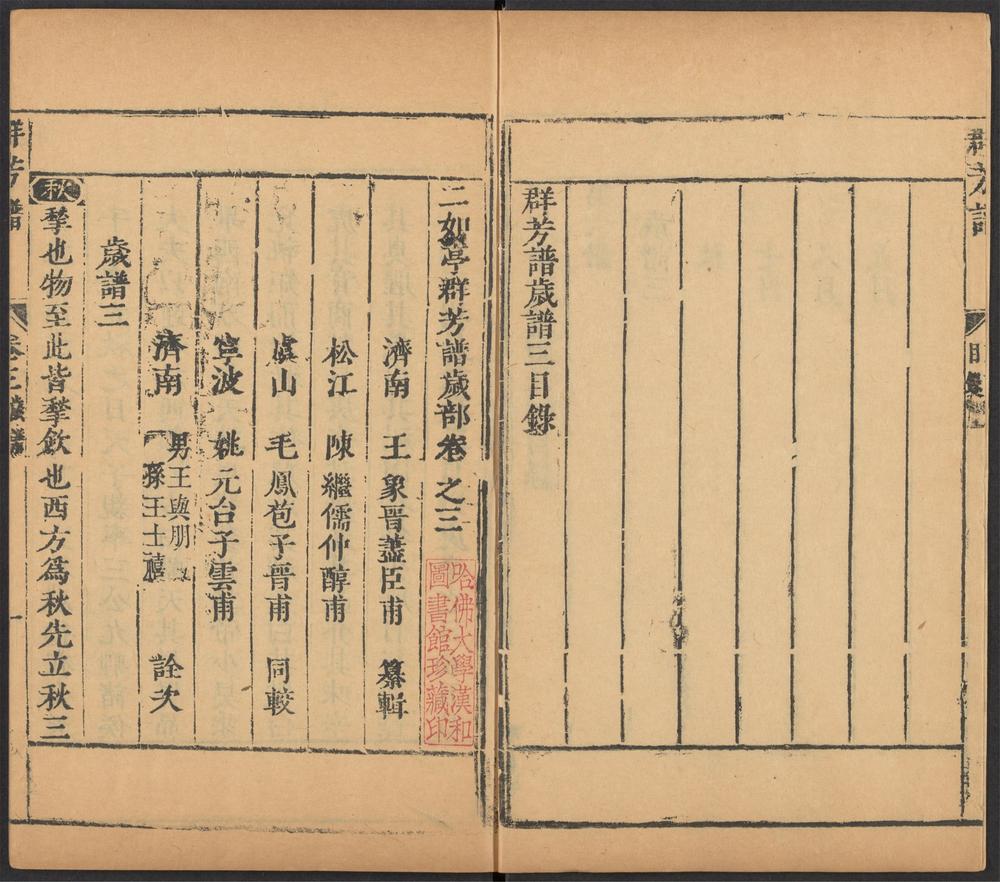 群芳譜
目錄
群芳譜歲譜三目錄
二如亭群芳譜歲部卷之三
濟南 王象晉藎臣甫 纂輯
松江 陳繼儒仲醇甫
虞山 毛鳳苞子晉甫 同較
寧波 姚元台子雲甫
濟南 男王與朋
孫王士禧 詮次
歲譜三
秋 揫也物至此皆揫斂也西方爲秋先立秋三
哈佛大學漢和
圖書館珍藏印
群芳譜
卷三 歲譜
一